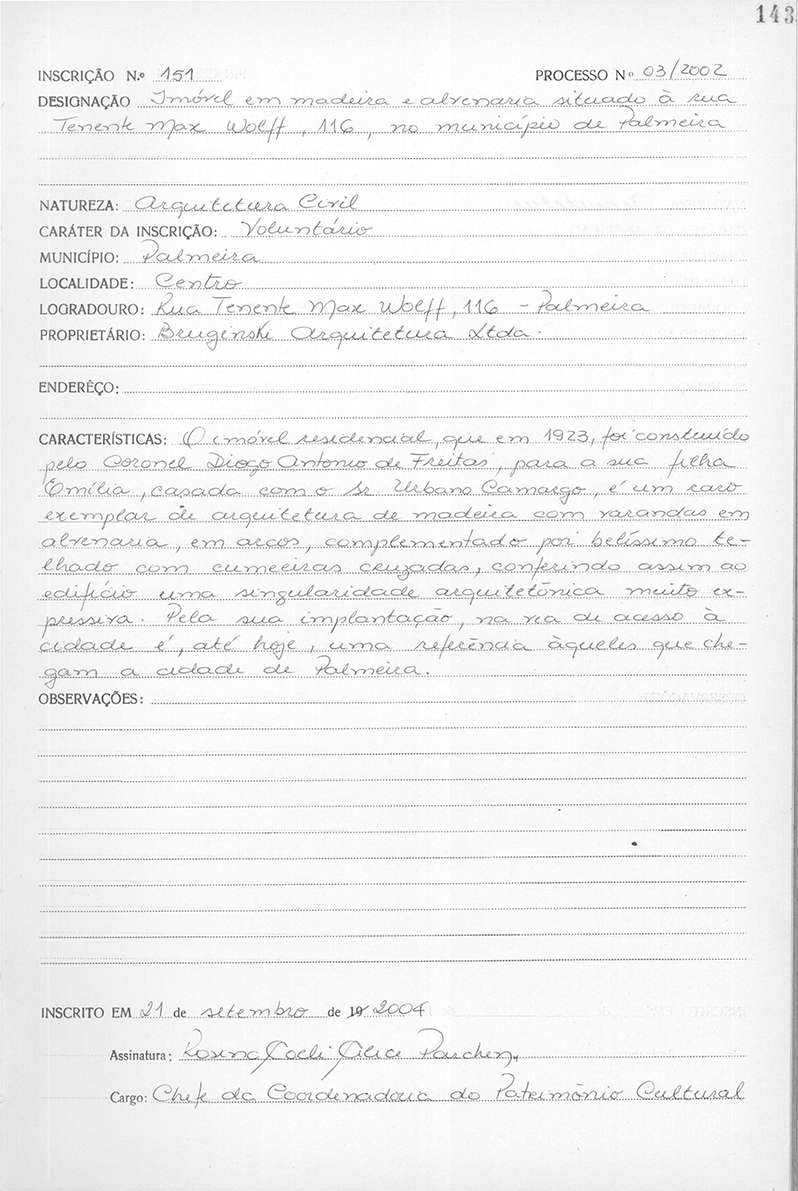 143
INSCRIÇÃO N.º 151 PROCESSO Nº 03/2002
DESIGNAÇÃO Imóvel em madeira e alvenaria situado à rua
Tenente Max Wolff, 116, no município de Palmeira
NATUREZA: Arquitetura Civil
CARÁTER DA INSCRIÇÃO: Voluntário
MUNICÍPIO: Palmeira
LOCALIDADE: Centro
LOGRADOURO: Rua Tenente Max Wolff, 116 - Palmeira
PROPRIETÁRIO: Bruginski Arquitetura Ltda.
ENDERÊÇO:
CARACTERÍSTICAS: O imóvel residencial, que em 1923, foi construído
pelo Coronel Diogo Antonio de Freitas, para a sua filha
Emília, casada com o Sr Urbano Camargo, é um raro
exemplar de arquitetura de madeira com varandas em
alvenaria, em arcos, complementado por belíssimo te-
lhado com cumeeiras cruzadas, conferindo assim ao
edifício uma singularidade arquitetônica muito ex-
pressiva. Pela sua implantação, na via de acesso à
cidade é, até hoje, uma referência àqueles que che-
gam a cidade de Palmeira.
OBSERVAÇÕES:
INSCRITO EM 21 de setembro de 19 2004
Assinatura: Rosina Coeli Alice Parchen
Cargo: Chefe da Coordenadoria do Patrimônio Cultural